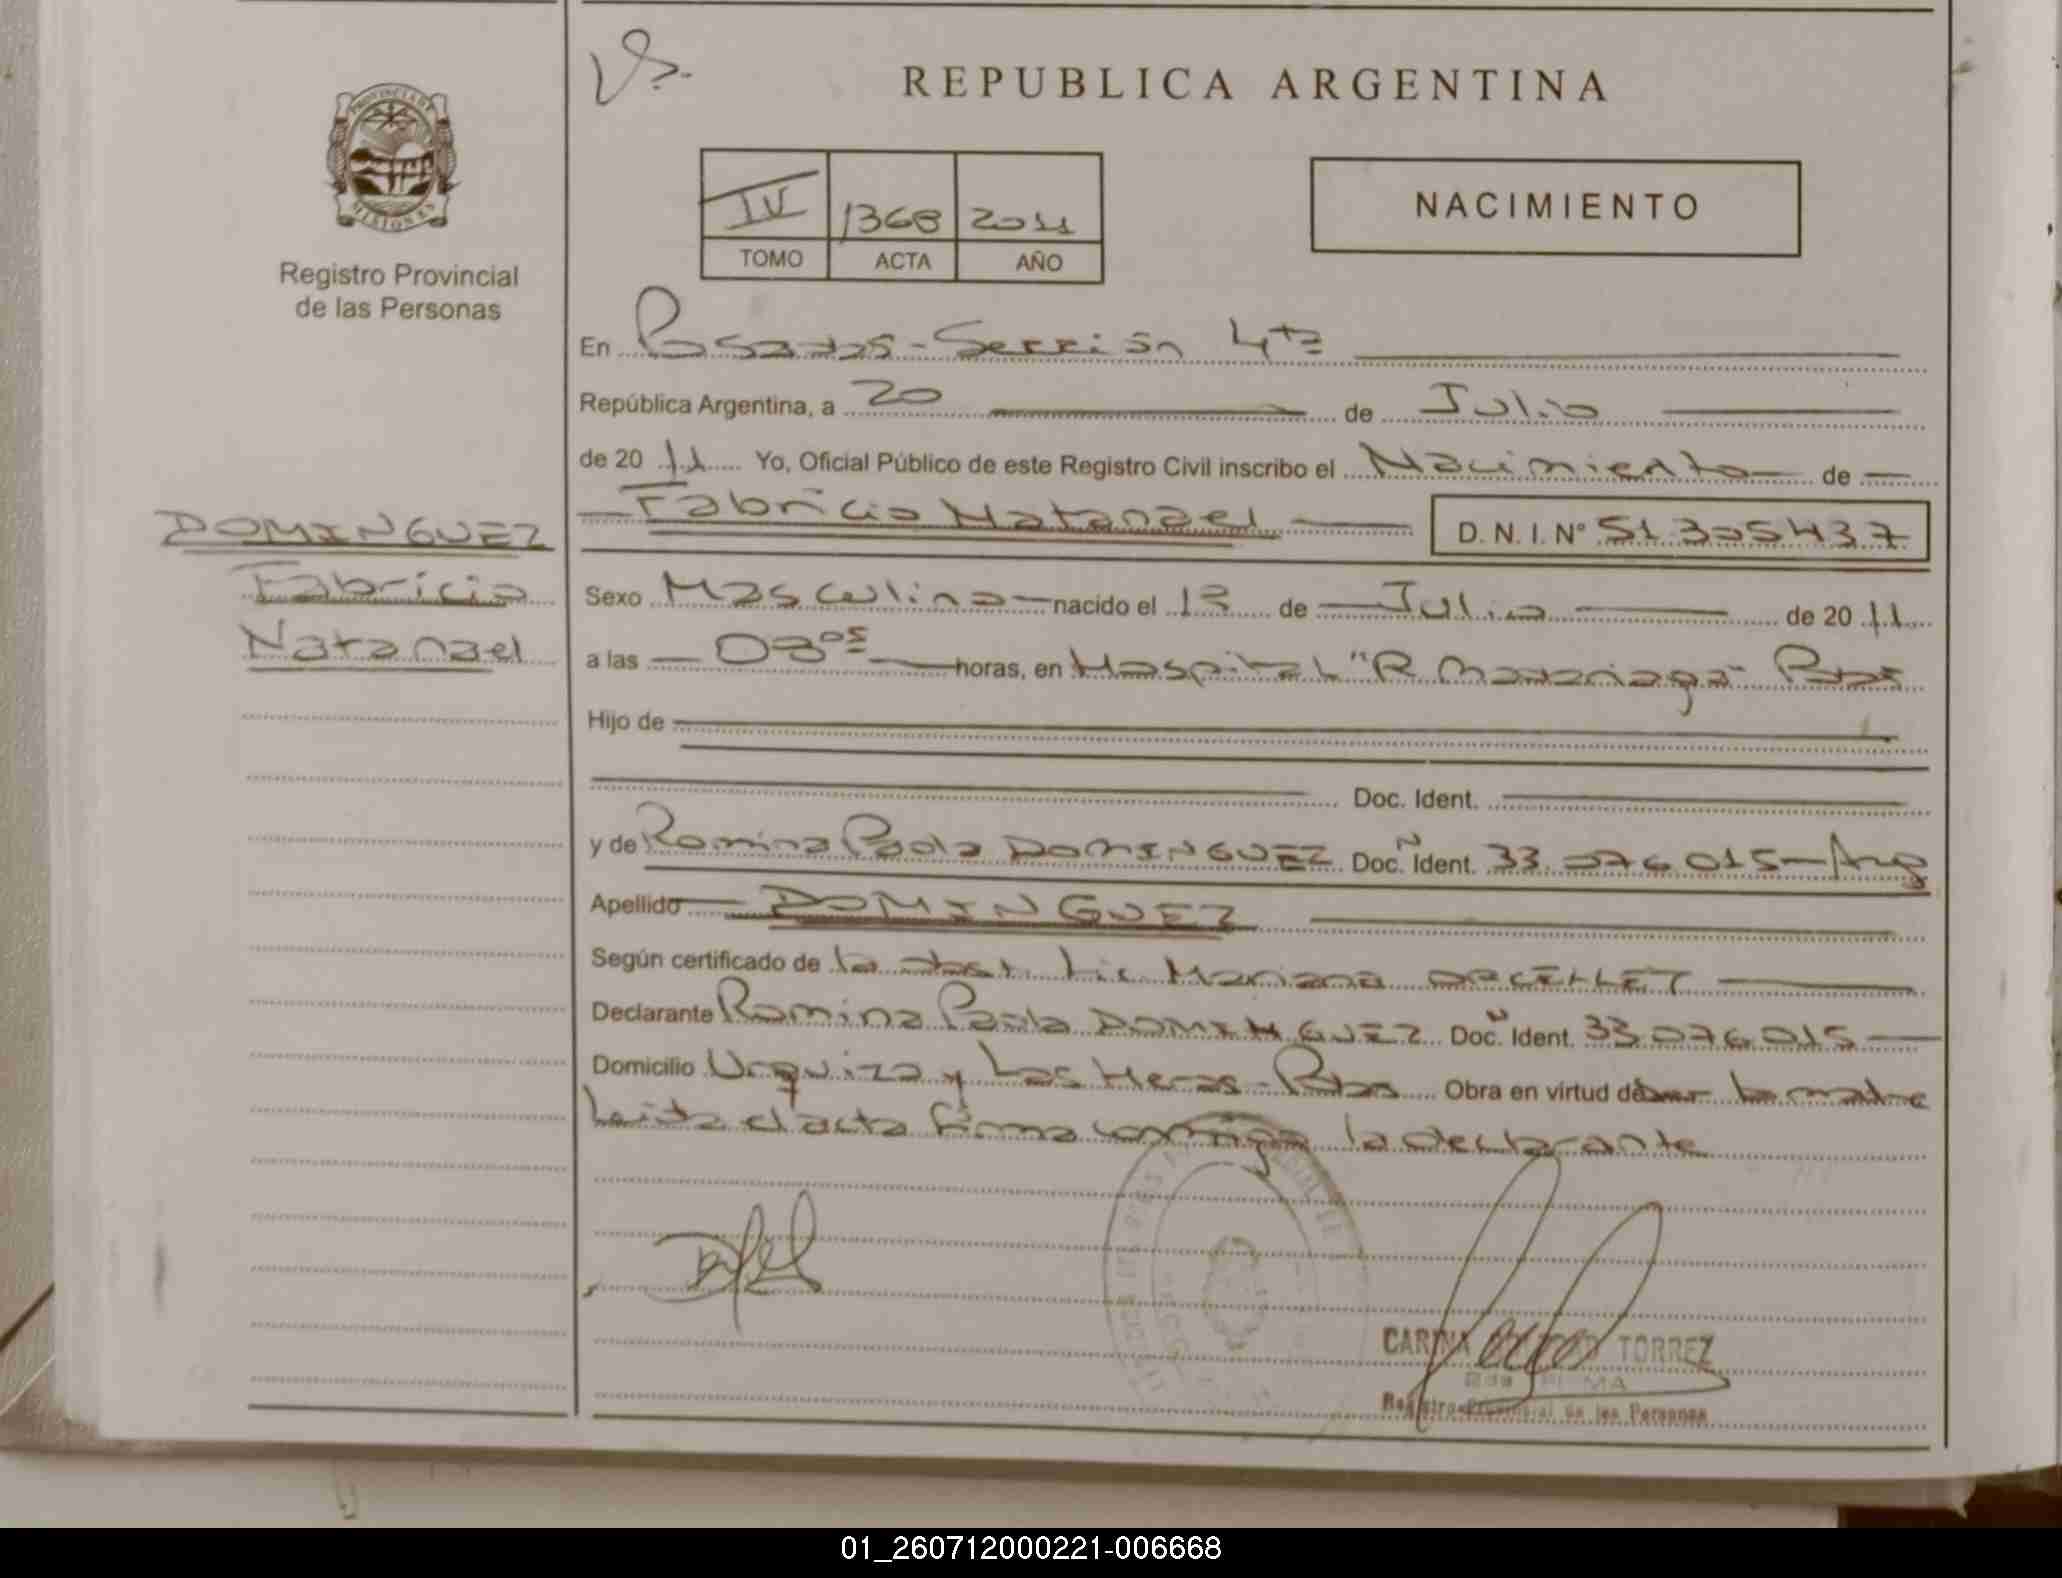 REPUBLICA ARGENTINA
PROVINCIA DE
MISIONES
Registro Provincial
de las Personas
IV 1368 2011
TOMO ACTA AÑO
NACIMIENTO
En Posadas - Sección 4ta
República Argentina, a 20 de Julio
de 20 11 Yo, Oficial Público de este Registro Civil inscribo el Nacimiento de
Fabricio Natanael D. N. I. Nº 51.305437
DOMINGUEZ
Fabricio
Natanael
Sexo Masculino nacido el de Julio de 20 11
a las horas, en Hospital "R Madariaga" Pdas
Hijo de
Doc. Ident.
y de Romina Paola DOMINGUEZ Doc. Ident. 33.076.015 - Arg
Apellido DOMINGUEZ
Según certificado de la Lic Mariana
Declarante Romina Paola DOMINGUEZ Doc. Ident. 33.076.015
Domicilio Urquiza y Las Heras - Pdas Obra en virtud de ser la madre
Leida el acta firma conmigo la declarante
CARINA TORREZ
Registro Provincial de las Personas
01_260712000221-006668